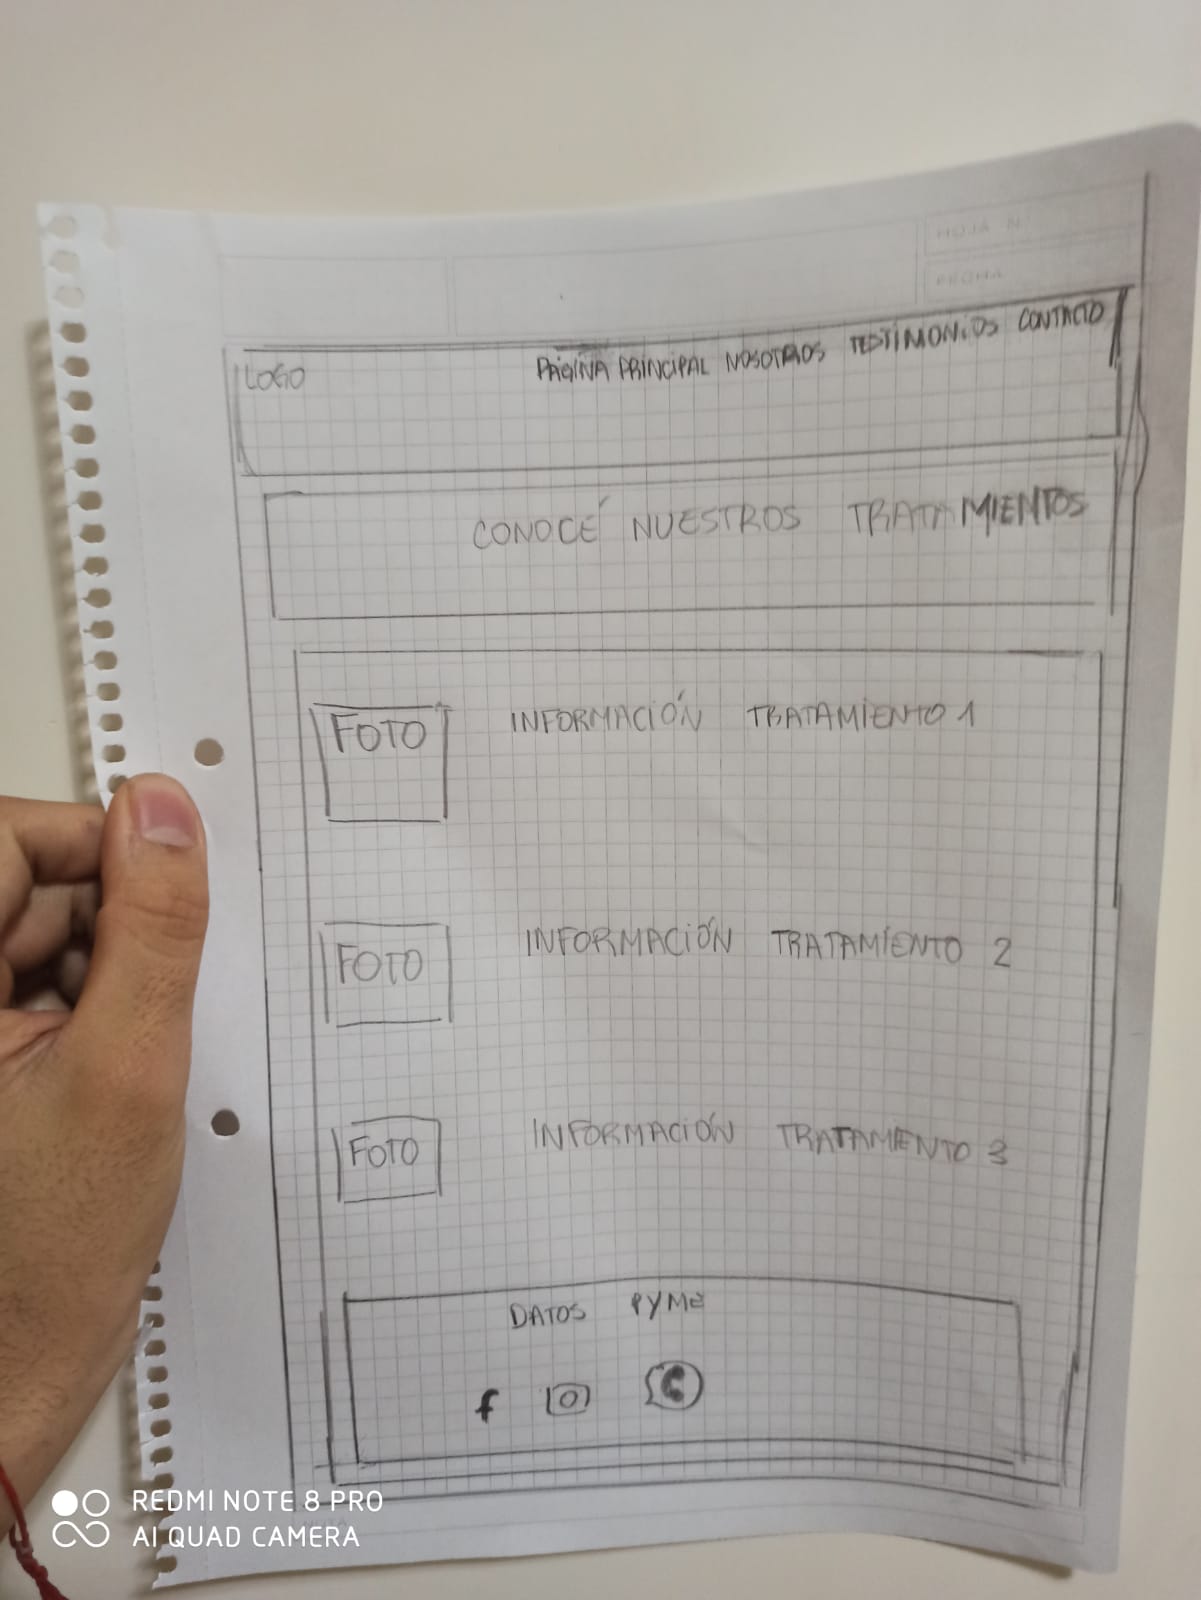 HOJA N
FECHA
LOGO PÁGINA PRINCIPAL NOSOTROS TESTIMONIOS CONTACTO
CONOCÉ NUESTROS TRATAMIENTOS
FOTO INFORMACIÓN TRATAMIENTO 1
FOTO INFORMACIÓN TRATAMIENTO 2
FOTO INFORMACIÓN TRATAMIENTO 3
DATOS PYME
f
REDMI NOTE 8 PRO
AI QUAD CAMERA